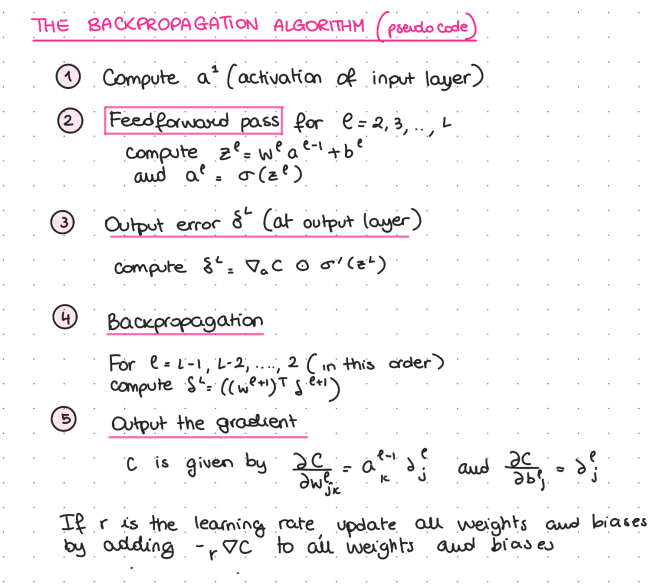 THE BACKPROPAGATION ALGORITHM (pseudo code)
1 Compute a¹ (activation of input layer)
2 Feedforward pass for ℓ = 2, 3, .., L
compute zˡ = wˡ aˡ⁻¹ + bˡ
and aˡ = σ(zˡ)
3 Output error δᴸ (at output layer)
compute δᴸ = ∇ₐC ⊙ σ'(zᴸ)
4 Backpropagation
For ℓ = L-1, L-2, ...., 2 (in this order)
compute δᴸ = ((wˡ⁺¹)ᵀ δˡ⁺¹)
5 Output the gradient
C is given by ∂C/∂wˡⱼₖ = aₖˡ⁻¹ ∂ⱼˡ and ∂C/∂bˡⱼ = ∂ⱼˡ
If r is the learning rate, update all weights and biases
by adding -r ∇C to all weights and biases